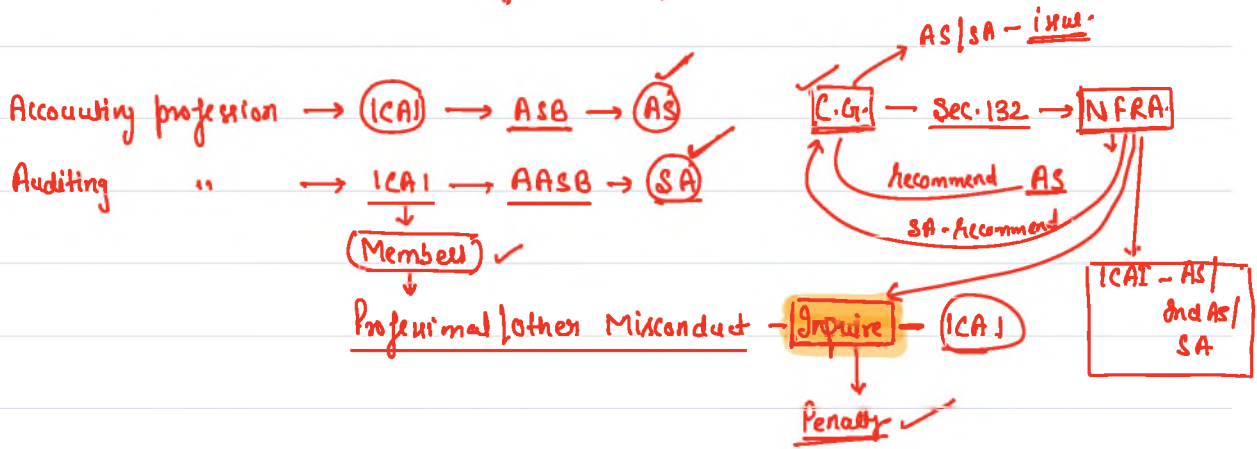 AS/SA - issue.
Accounting profession → ICAI → ASB → AS
C.G. - Sec. 132 → NFRA.
Auditing " → ICAI → AASB → SA
recommend AS
SA - recommend
Members
ICAI - AS/
Ind AS/
SA
Professional/other Misconduct - Inquire - ICAI
Penalty